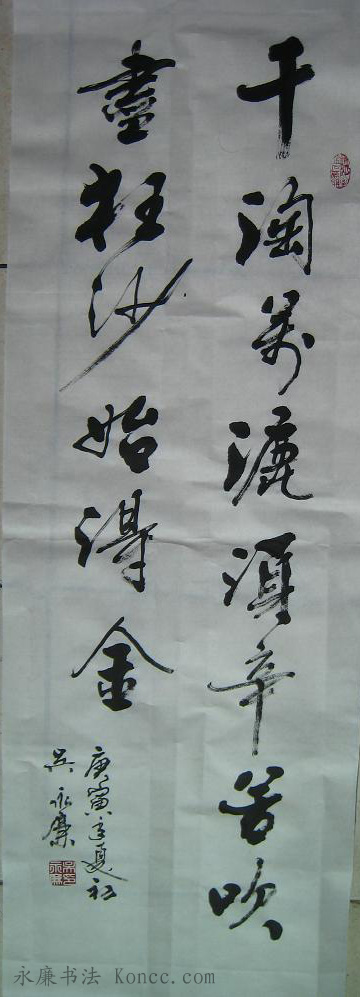 千淘萬漉湏辛苦吹
盡狂沙始得金
庚寅夏初
吴永廉
永廉书法 Koncc.com